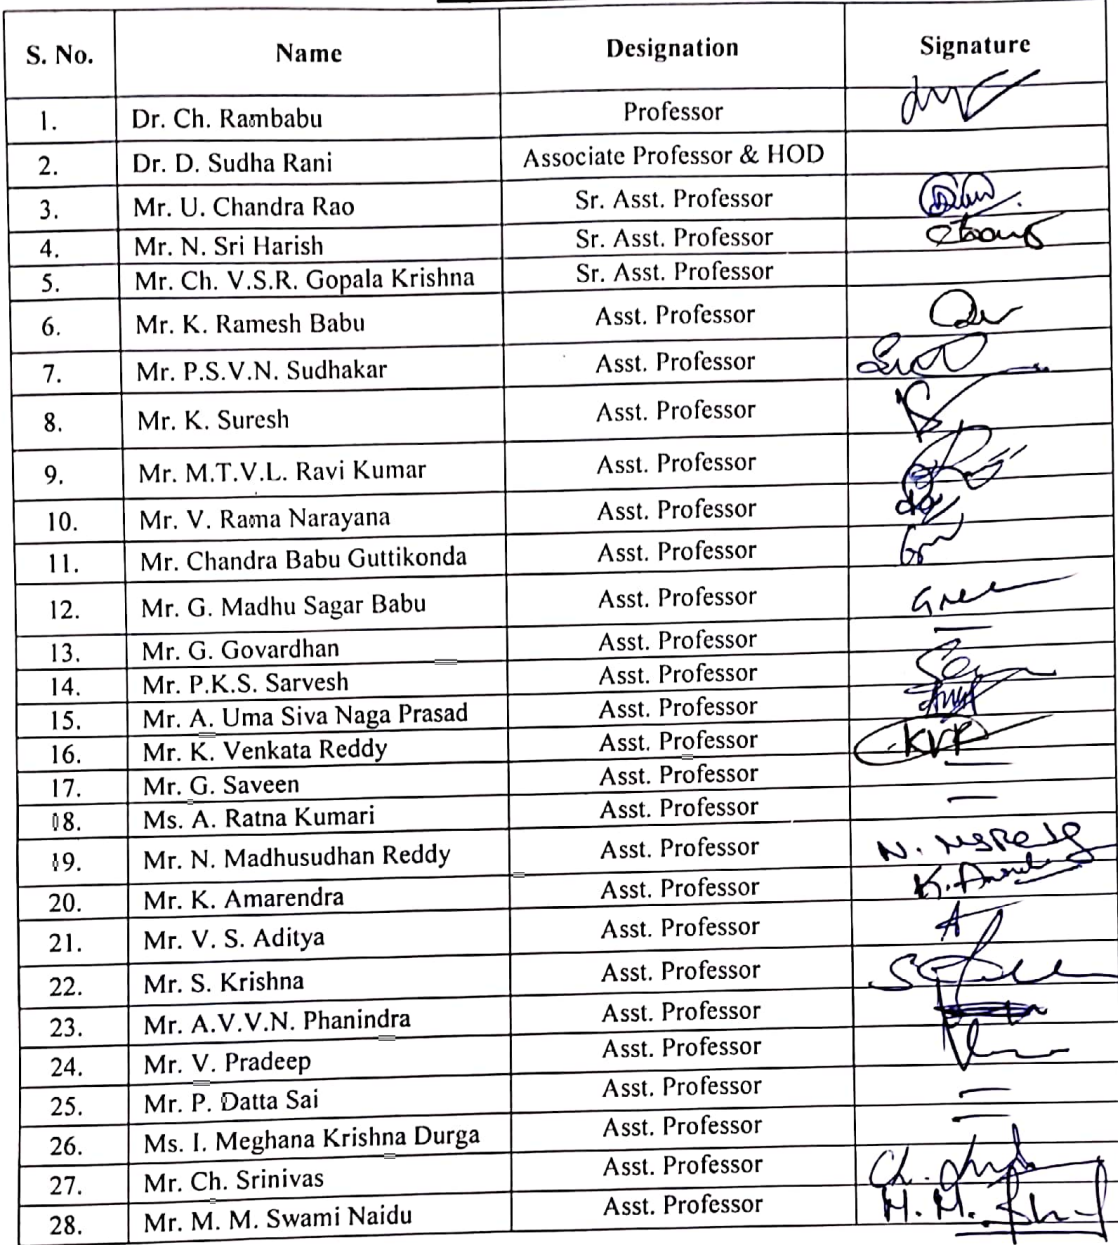 S. No. Name Designation Signature
1. Dr. Ch. Rambabu Professor
2. Dr. D. Sudha Rani Associate Professor & HOD
3. Mr. U. Chandra Rao Sr. Asst. Professor
4. Mr. N. Sri Harish Sr. Asst. Professor
5. Mr. Ch. V.S.R. Gopala Krishna Sr. Asst. Professor
6. Mr. K. Ramesh Babu Asst. Professor
7. Mr. P.S.V.N. Sudhakar Asst. Professor
8. Mr. K. Suresh Asst. Professor
9. Mr. M.T.V.L. Ravi Kumar Asst. Professor
10. Mr. V. Rama Narayana Asst. Professor
11. Mr. Chandra Babu Guttikonda Asst. Professor
12. Mr. G. Madhu Sagar Babu Asst. Professor
13. Mr. G. Govardhan Asst. Professor —
14. Mr. P.K.S. Sarvesh Asst. Professor
15. Mr. A. Uma Siva Naga Prasad Asst. Professor
16. Mr. K. Venkata Reddy Asst. Professor KVR
17. Mr. G. Saveen Asst. Professor —
18. Ms. A. Ratna Kumari Asst. Professor —
19. Mr. N. Madhusudhan Reddy Asst. Professor N.
20. Mr. K. Amarendra Asst. Professor K.
21. Mr. V. S. Aditya Asst. Professor A
22. Mr. S. Krishna Asst. Professor
23. Mr. A.V.V.N. Phanindra Asst. Professor
24. Mr. V. Pradeep Asst. Professor
25. Mr. P. Datta Sai Asst. Professor —
26. Ms. I. Meghana Krishna Durga Asst. Professor —
27. Mr. Ch. Srinivas Asst. Professor Ch.
28. Mr. M. M. Swami Naidu Asst. Professor M. M.